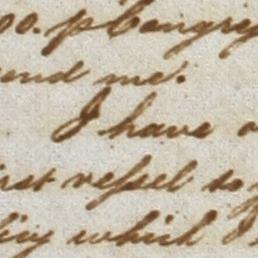 00. p Congrey
end me.
I have
rst vessel to
which